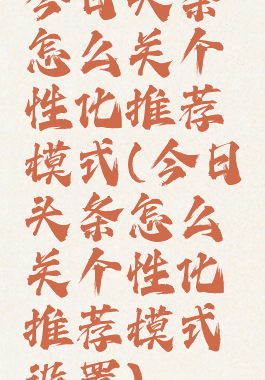 今日头条
怎么关个
性化推荐
模式(今日
头条怎么
关个性化
推荐模式
设置)